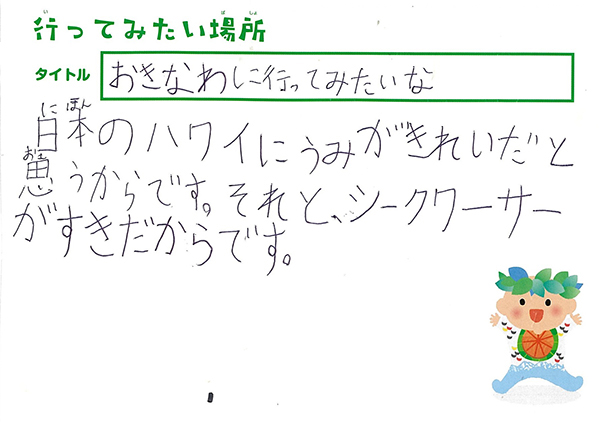 行ってみたい場所
タイトル おきなわに行ってみたいな
日本のハワイにうみがきれいだと
思うからです。それと、シークワーサー
がすきだからです。